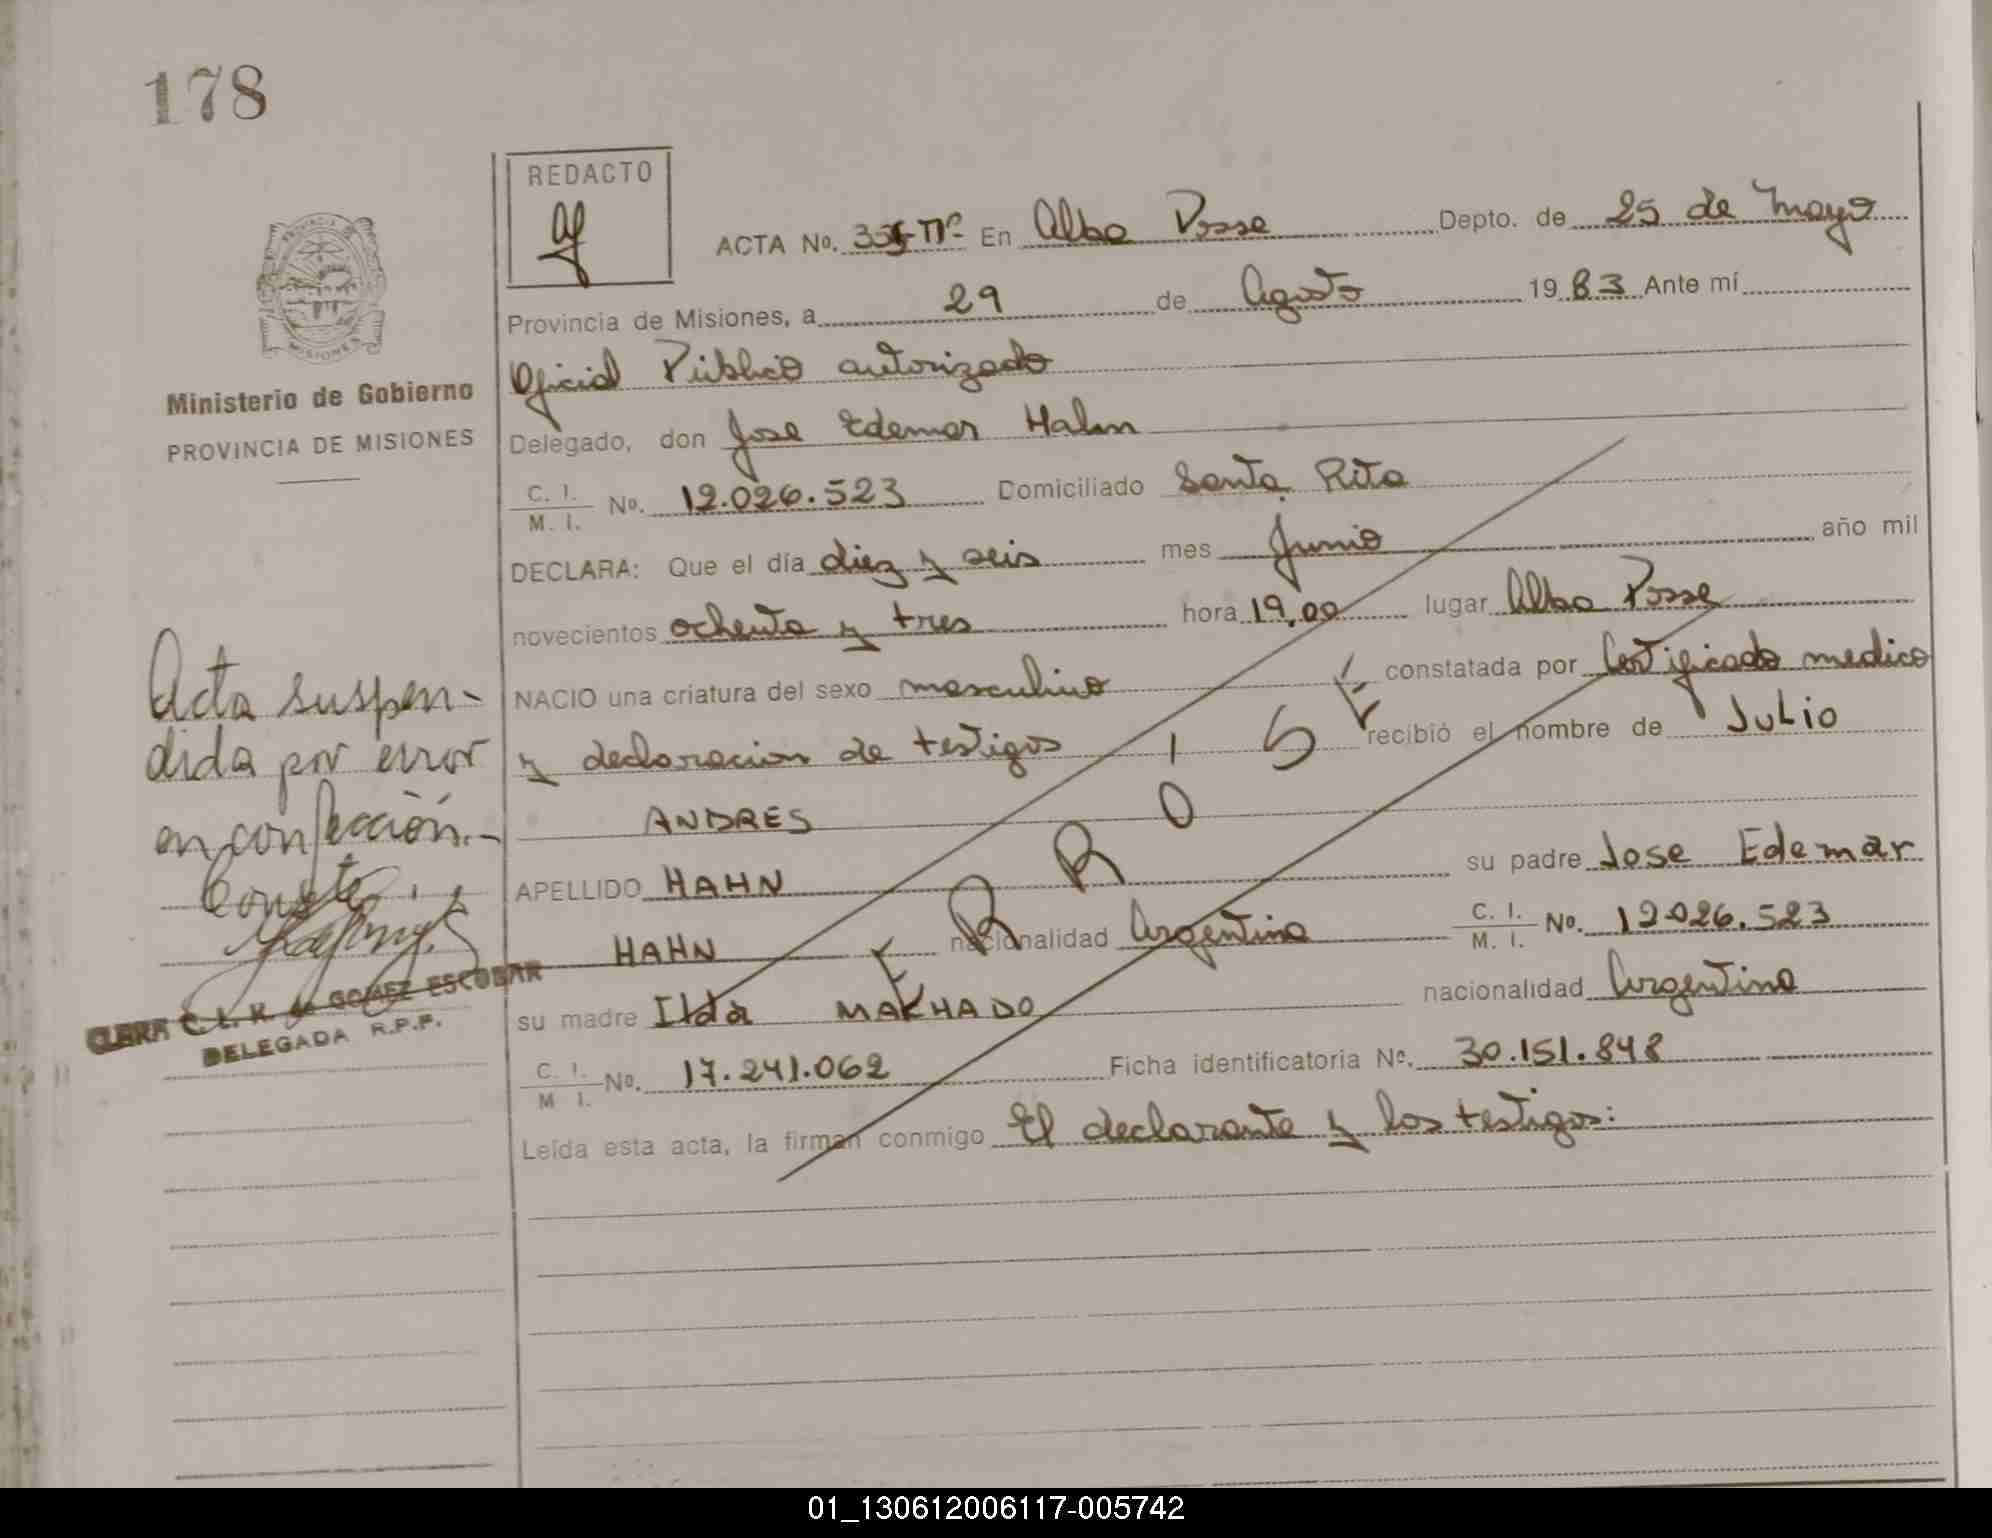 178
REDACTO
ACTA No. En Alba Posse Depto. de 25 de Mayo
PROVINCIA DE
MISIONES
Provincia de Misiones, a 29 de Agosto 1983 Ante mí
Oficial Público autorizado
Ministerio de Gobierno
PROVINCIA DE MISIONES
Delegado, don Jose Edemar Hahn
C. I.
M. I. No. 12.026.523 Domiciliado Santa Rita
DECLARA: Que el día diez y seis mes Junio año mil
novecientos ochenta y tres hora 19,00 lugar Alba Posse
NACIO una criatura del sexo masculino constatada por Certificado medico
y declaracion de testigos recibió el nombre de JuLio
ANDRES
APELLIDO HAHN su padre Jose Edemar
HAHN nacionalidad Argentina C. I.
M. I. No. 12026.523
su madre Ilda MAKHADO nacionalidad Argentina
C. I.
M I. No. 17.241.062 Ficha identificatoria Nº. 30.151.848
Leída esta acta, la firman conmigo El declarante y los testigos:
E R R O
Acta suspen-
dida por error
en confección.-
Conste
CLARA C. L. K. de GOMEZ ESCOBAR
DELEGADA R.P.P.
01_130612006117-005742